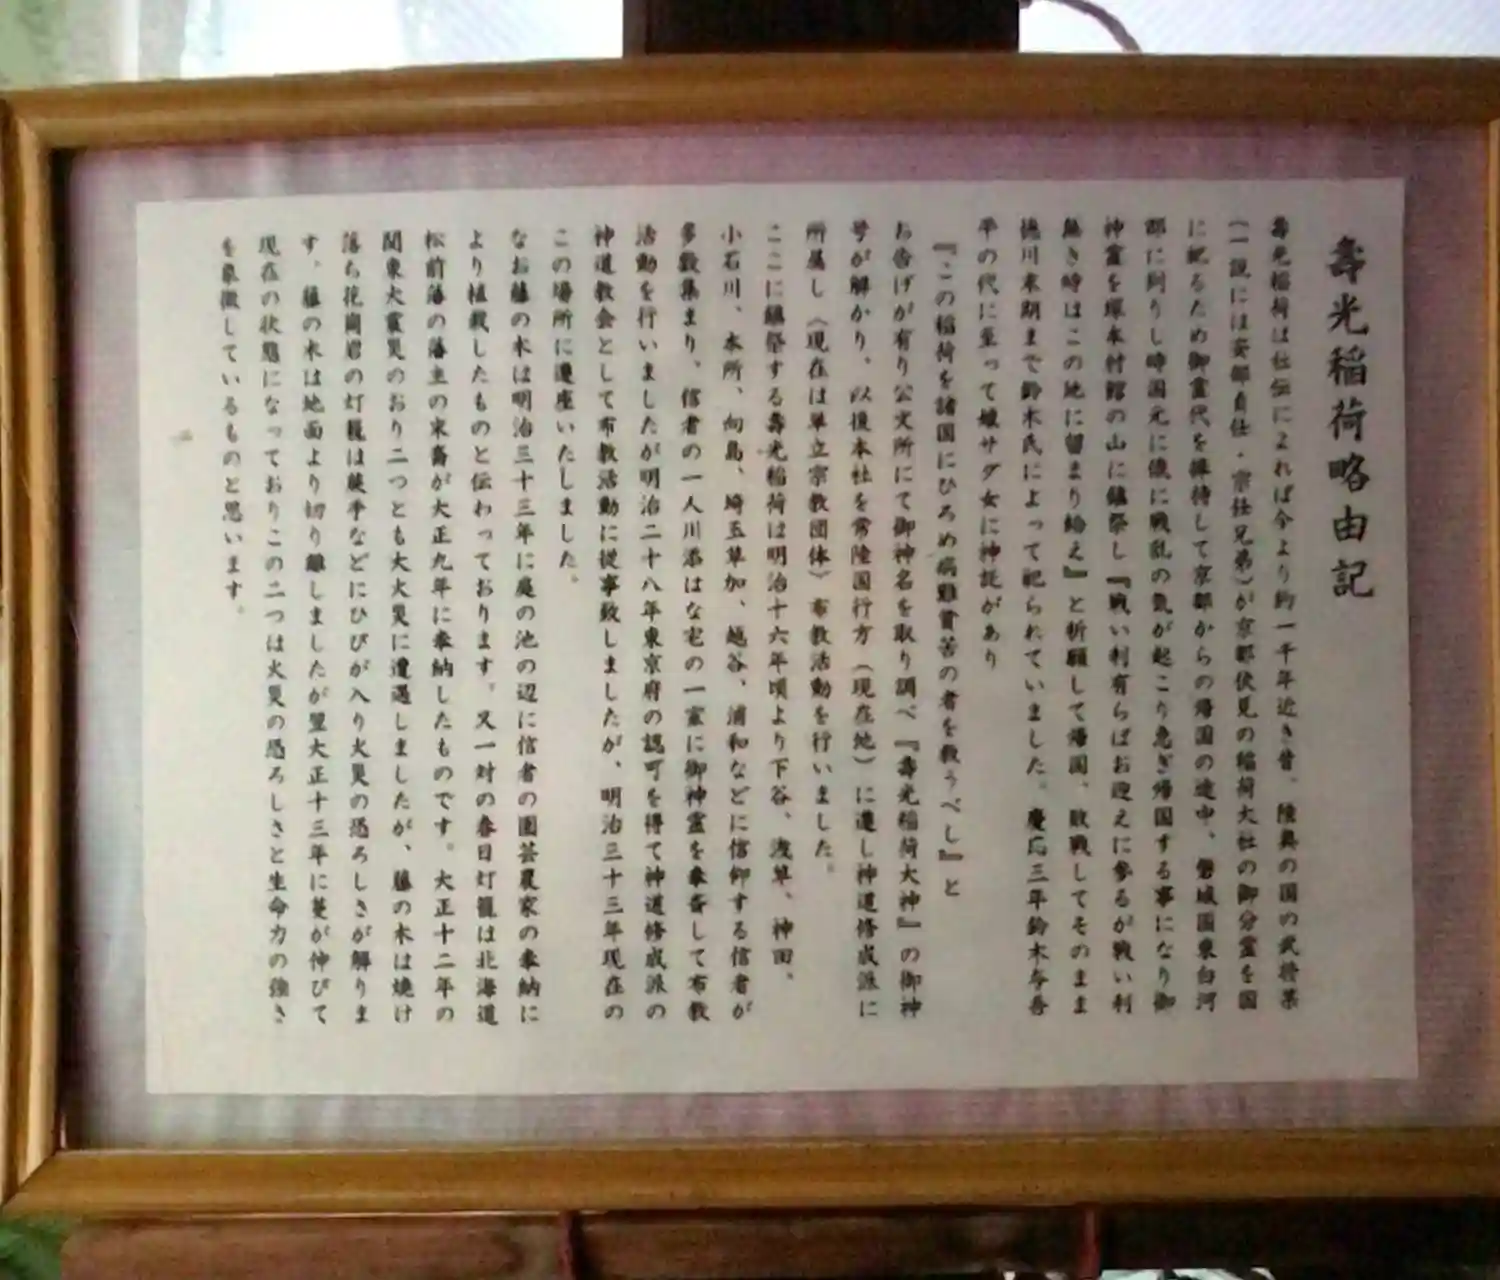 壽光稲荷略由記
壽光稲荷は社伝によれば今より約一千年近き昔、陸奥の国の武将某
(一説には安部貞任・宗任兄弟)が京都伏見の稲荷大社の御分霊を国
に祀るため御霊代を捧持して京都からの帰国の途中、磐城国東白河
郡に到りし時国元に俄に戦乱の気が起こり急ぎ帰国する事になり御
神霊を塚本村館の山に鎮祭し『戦い利有らばお迎えに参るが戦い利
無き時はこの地に留まり給え』と祈願して帰国、敗戦してそのまま
徳川末期まで鈴木氏によって祀られていました。慶応三年鈴木与吾
平の代に至って嬢サダ女に神託があり
『この稲荷を諸国にひろめ病難貧苦の者を救うべし』と
お告げが有り公文所にて御神名を取り調べ『壽光稲荷大神』の御神
号が解かり、以後本社を常陸国行方(現在地)に遷し神道修成派に
所属し(現在は単立宗教団体)布教活動を行いました。
ここに鎮祭する壽光稲荷は明治十六年頃より下谷、浅草、神田、
小石川、本所、向島、埼玉草加、越谷、浦和などに信仰する信者が
多数集まり、信者の一人川添はな宅の一室に御神霊を奉斎して布教
活動を行いましたが明治二十八年東京府の認可を得て神道修成派の
神道教会として布教活動に従事致しましたが、明治三十三年現在の
この場所に遷座いたしました。
なお藤の木は明治三十三年に庭の池の辺に信者の園芸農家の奉納に
より植栽したものと伝わっております。又一対の春日灯籠は北海道
松前藩の藩主の末裔が大正九年に奉納したものです。大正十二年の
関東大震災のおり二つとも大火災に遭遇しましたが、藤の木は焼け
落ち花崗岩の灯籠は蕨手などにひびが入り火災の恐ろしさが解りま
す。藤の木は地面より切り離しましたが翌大正十三年に蔓が伸びて
現在の状態になっておりこの二つは火災の恐ろしさと生命力の強さ
を象徴しているものと思います。